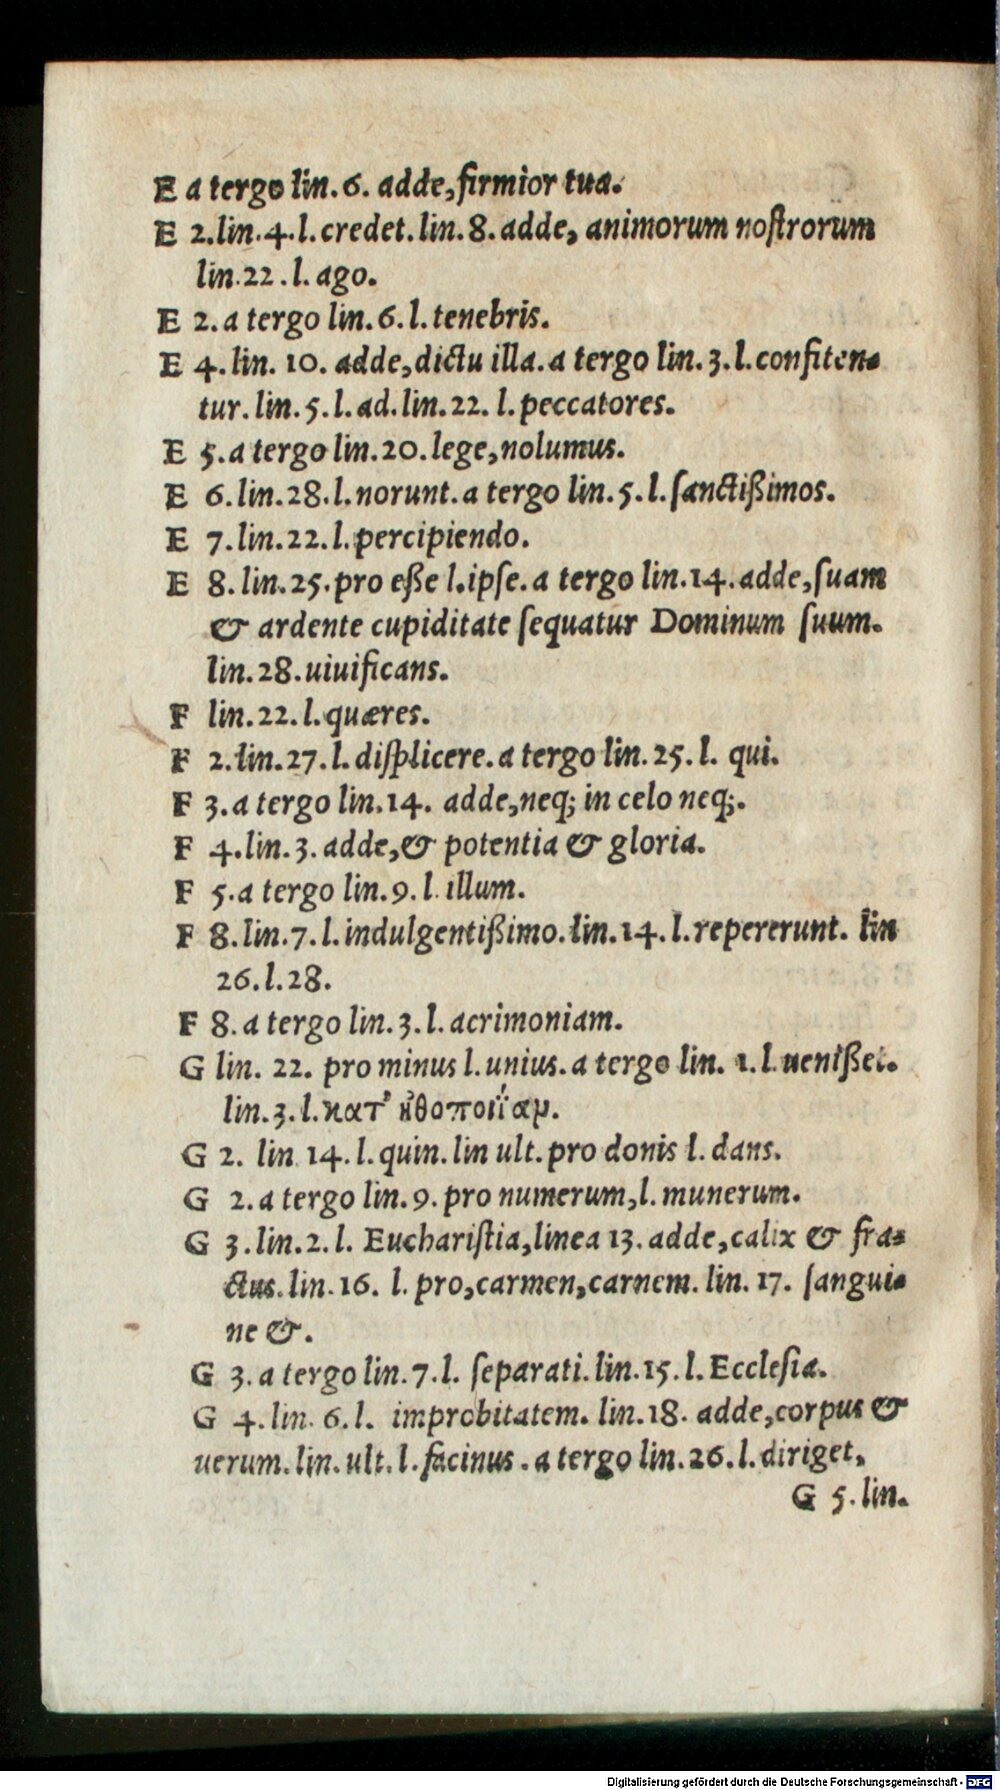 E a tergo lin. 6. adde, firmior tua.
E 2. lin. 4. l. credet. lin. 8. adde, animorum noſtrorum
lin. 22. l. ago.
E 2. a tergo lin. 6. l. tenebris.
E 4. lin. 10. adde, dictu illa. a tergo lin. 3. l. confiten=
tur. lin. 5. l. ad. lin. 22. l. peccatores.
E 5. a tergo lin. 20. lege, nolumus.
E 6. lin. 28. l. norunt. a tergo lin. 5. l. ſanctißimos.
E 7. lin. 22. l. percipiendo.
E 8. lin. 25. pro eße l. ipſe. a tergo lin. 14. adde, ſuam
& ardente cupiditate ſequatur Dominum ſuum.
lin. 28. uiuificans.
F lin. 22. l. quæres.
F 2. lin. 27. l. diſplicere. a tergo lin. 25. l. qui.
F 3. a tergo lin. 14. adde, neq; in celo neq;.
F 4. lin. 3. adde, & potentia & gloria.
F 5. a tergo lin. 9. l. illum.
F 8. lin. 7. l. indulgentißimo. lin. 14. l. repererunt. lin
26. l. 28.
F 8. a tergo lin. 3. l. acrimoniam.
G lin. 22. pro minus l. unius. a tergo lin. 1. l. ueníßet.
lin. 3. l. κατ' ἠθοποιΐαμ.
G 2. lin 14. l. quin. lin ult. pro donis l. dans.
G 2. a tergo lin. 9. pro numerum, l. munerum.
G 3. lin. 2. l. Euchariſtia, linea 13. adde, calix & fra=
ctus. lin. 16. l. pro, carmen, carnem. lin. 17. ſangui=
ne &.
G 3. a tergo lin. 7. l. ſeparati. lin. 15. l. Eccleſia.
G 4. lin. 6. l. improbitatem. lin. 18. adde, corpus &
uerum. lin. ult. l. facinus. a tergo lin. 26. l. diriget,
G 5. lin.
Digitalisierung gefördert durch die Deutsche Forschungsgemeinschaft - DFG